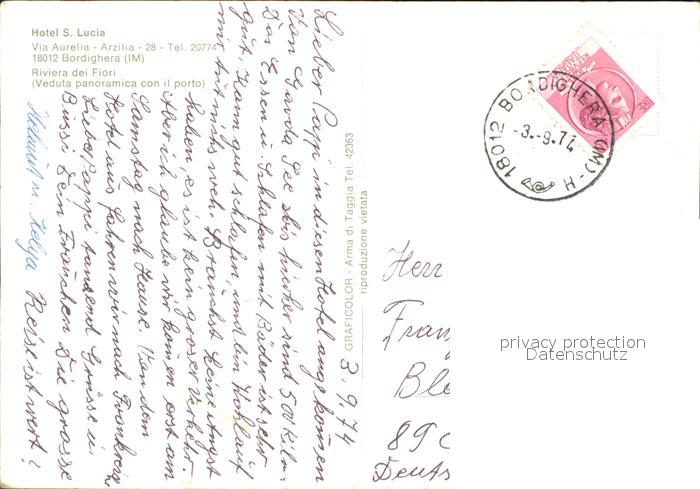 Hotel S. Lucia
Via Aurelia - Arzilia - 28 - Tel. 20774
18012 Bordighera (IM)
Riviera dei Fiori
(Veduta panoramica con il porto)
3.9.74
Lieber Pappi in diesen Hotel angekomen
Von Garda See bis hierher sind 500 kilm.
Das Essen u. Schlafen mit Bäder ist sehr
gut. Kann gut schlafen, und bin Wohlauf
mir tut nichts weh. Brauchst keine Angst
haben, es ist kein groser Verkehr.
Aber ich glaube wir komen erst am
Samstag nach Hause. Von dem
Hotel aus fahren wir nach Frankreich
Liebe Pappi tausend Grüsse u.
Bussi Dein Frauchen Die grosse
Reise ist wert!
Helmut u. Helga
GRAFICOLOR - Arma di Taggia Tel. 42363
riproduzione vietata
18012 BORDIGHERA (IM) - H
-3.-9.74
Herr
Fran
Ble
89
Deuts
privacy protection
Datenschutz